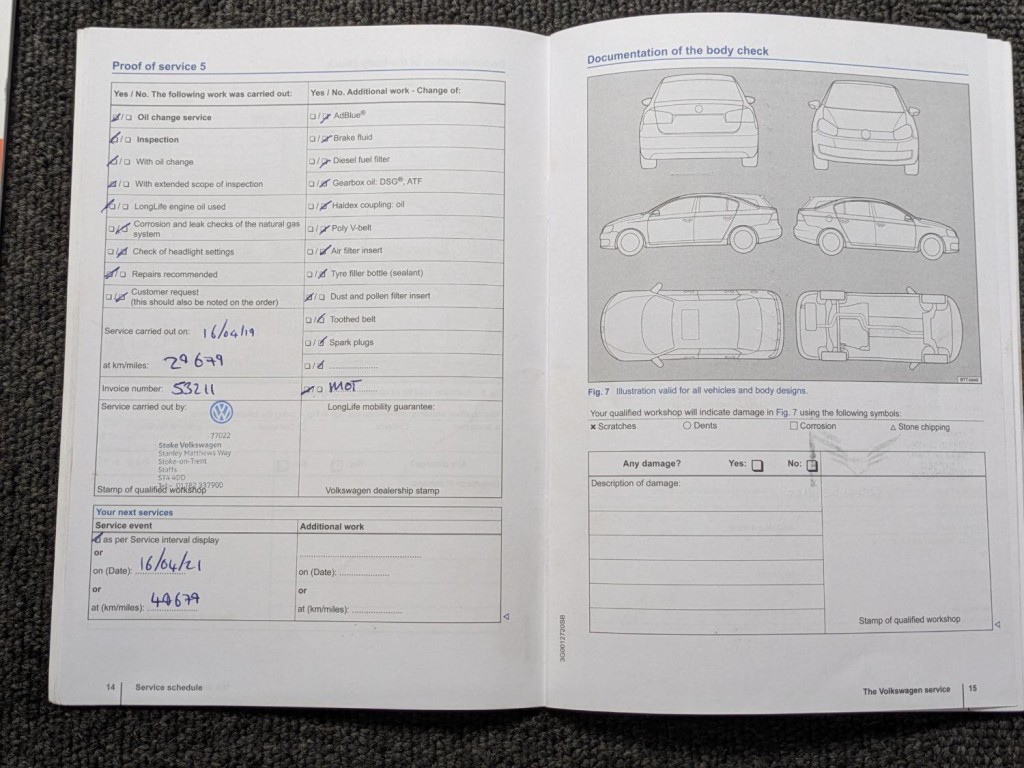 Proof of service 5
Yes / No. The following work was carried out:
Oil change service
Inspection
With oil change
With extended scope of inspection
LongLife engine oil used
Corrosion and leak checks of the natural gas
system
Check of headlight settings
Repairs recommended
Customer request
(this should also be noted on the order)
Service carried out on: 16/04/19
at km/miles: 29679
Invoice number: 53211
Service carried out by:
77022
Stoke Volkswagen
Stanley Matthews Way
Stoke-on-Trent
Staffs
ST4 4DD
Tel: 01782 337900
Stamp of qualified workshop
Yes / No. Additional work - Change of:
AdBlue®
Brake fluid
Diesel fuel filter
Gearbox oil: DSG®, ATF
Haldex coupling: oil
Poly V-belt
Air filter insert
Tyre filler bottle (sealant)
Dust and pollen filter insert
Toothed belt
Spark plugs
MOT
LongLife mobility guarantee:
Volkswagen dealership stamp
Your next services
Service event
as per Service interval display
or
on (Date): 16/04/21
or
at (km/miles): 49679
Additional work
on (Date):
or
at (km/miles):
14 Service schedule
Documentation of the body check
Fig. 7 Illustration valid for all vehicles and body designs.
Your qualified workshop will indicate damage in Fig. 7 using the following symbols:
× Scratches ○ Dents □ Corrosion △ Stone chipping
Any damage? Yes: No:
Description of damage:
Stamp of qualified workshop
The Volkswagen service 15